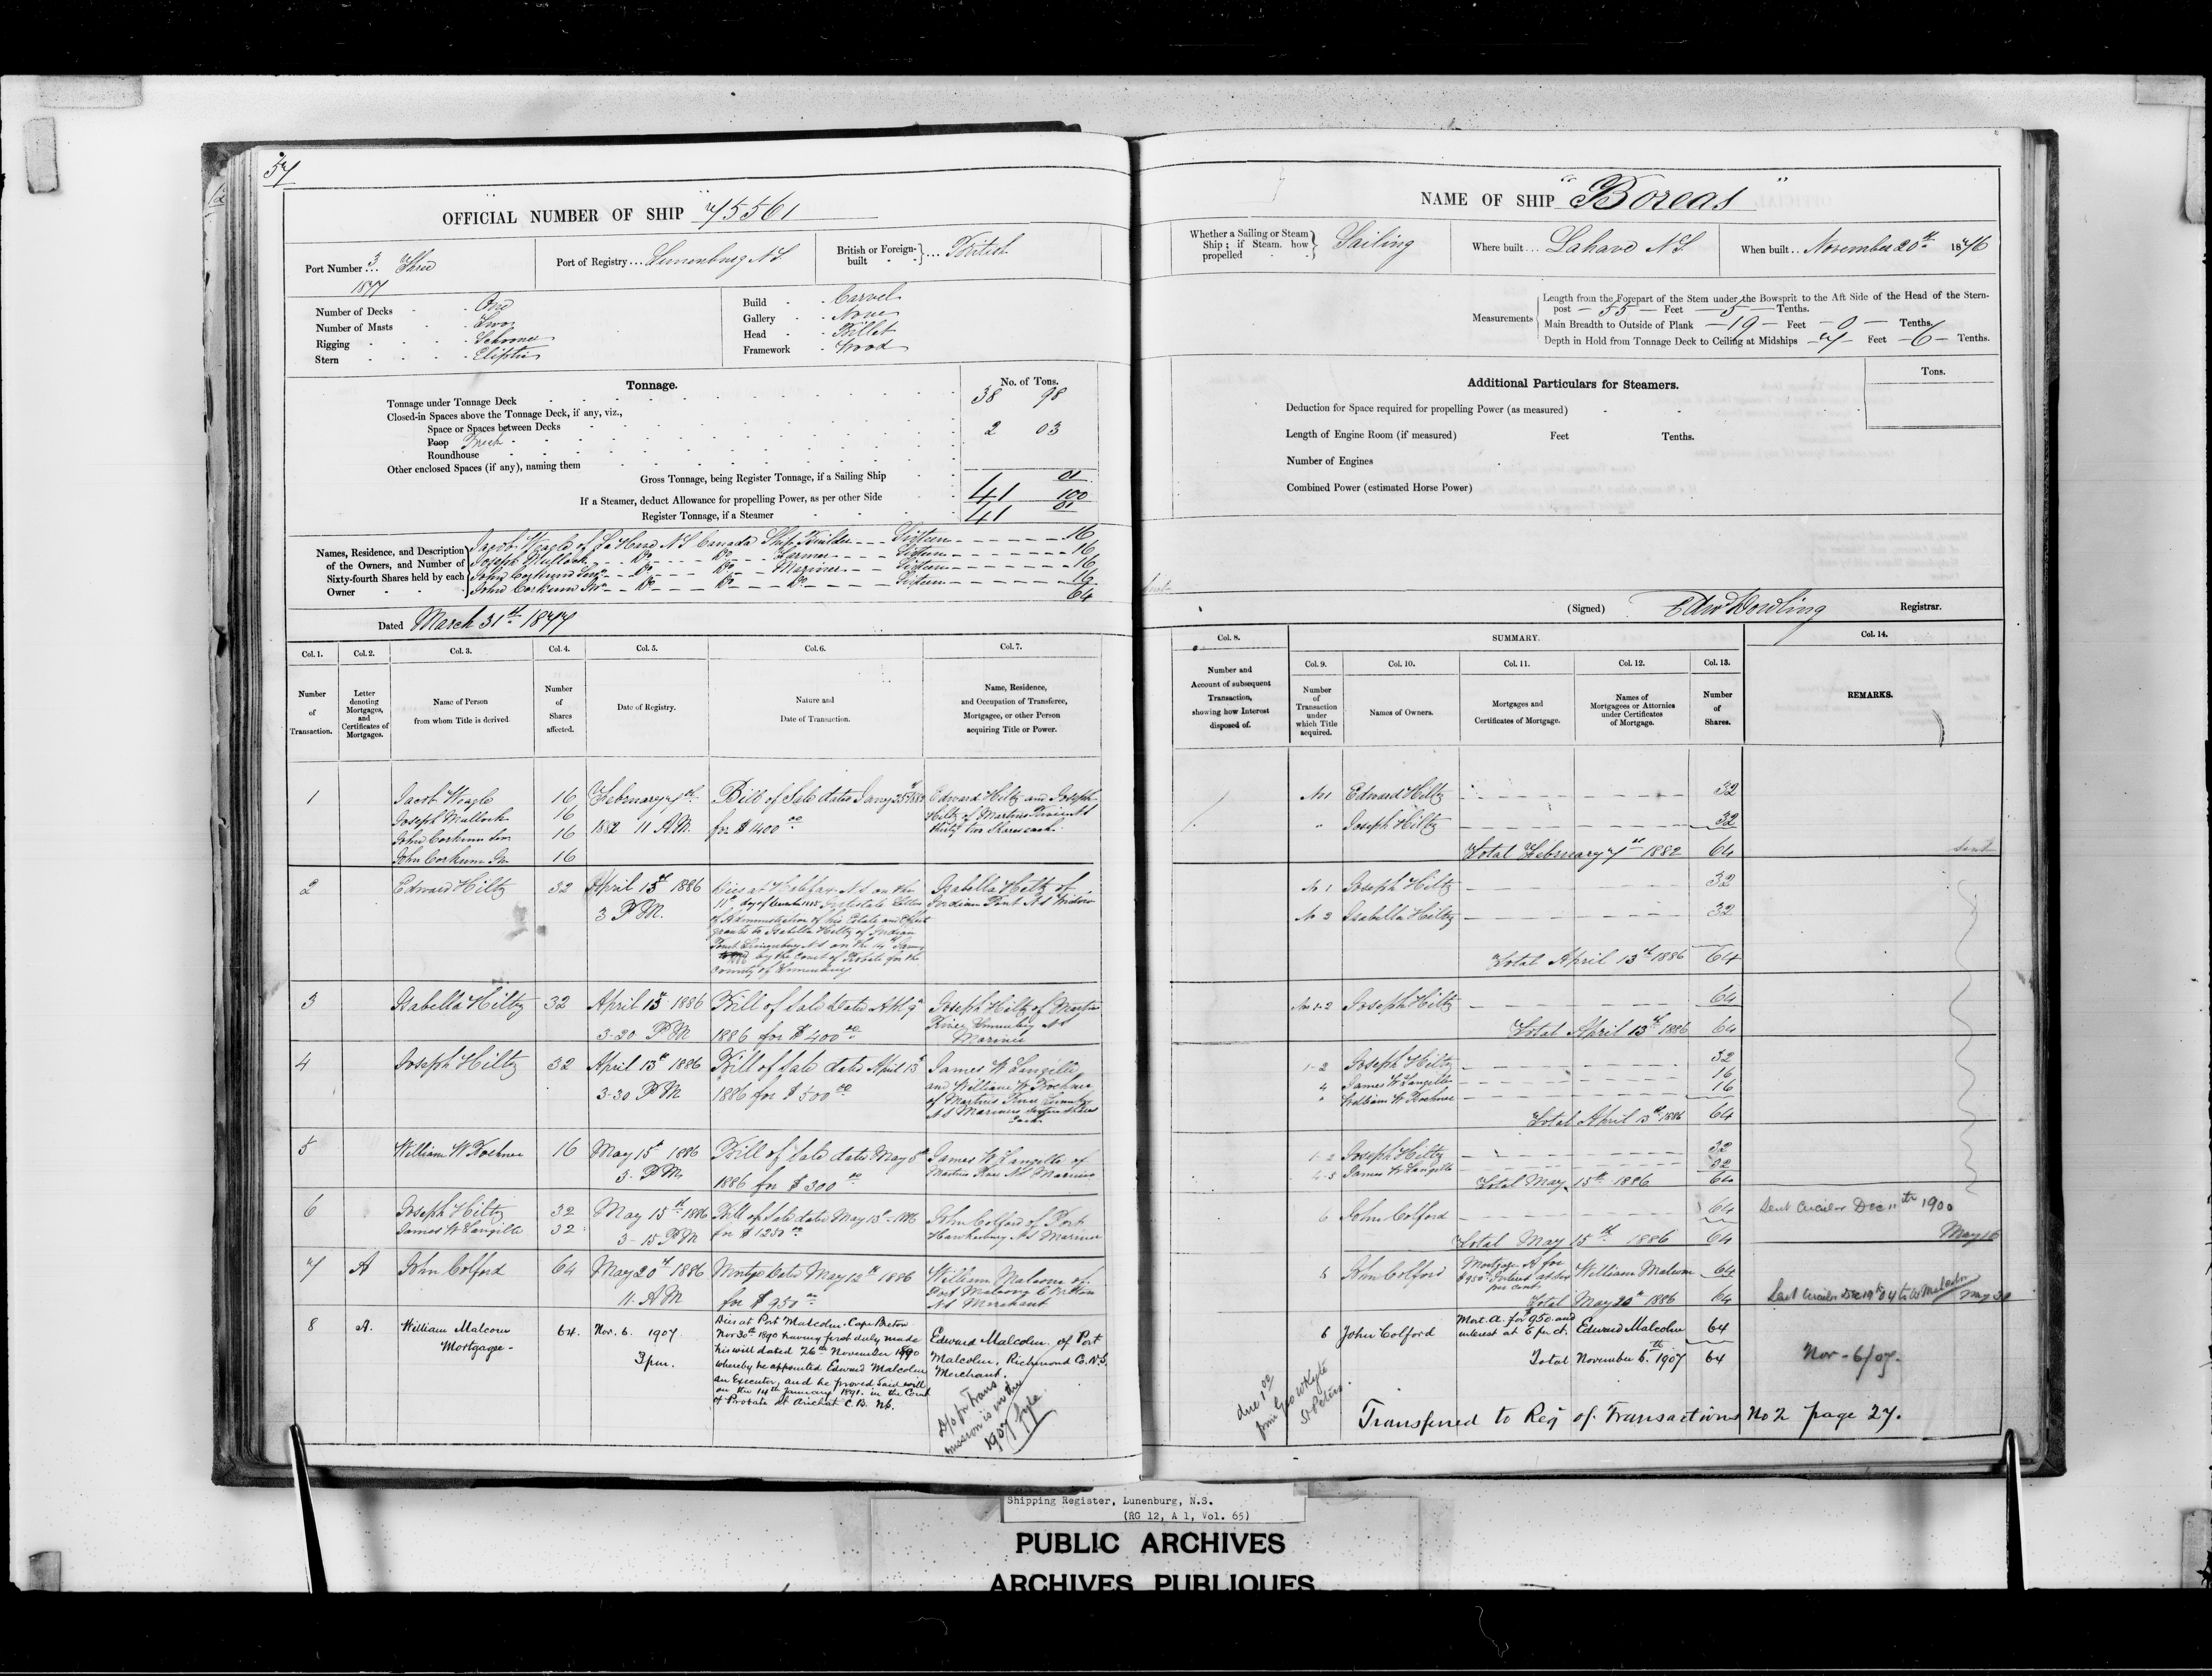 57
OFFICIAL NUMBER OF SHIP 75561
Port Number 3 Three
1877
Port of Registry... Lunenburg N S
British or Foreign-built - } ... British
Number of Decks - One
Number of Masts - Two
Rigging - Schooner
Stern - Eliptic
Build - Carvel
Gallery - None
Head - Billet
Framework - Wood
Tonnage.
No. of Tons.
Tonnage under Tonnage Deck 38 98
Closed-in Spaces above the Tonnage Deck, if any, viz.,
Space or Spaces between Decks
Poop 2 03
Roundhouse
Other enclosed Spaces (if any), naming them
Gross Tonnage, being Register Tonnage, if a Sailing Ship 41 01/100
If a Steamer, deduct Allowance for propelling Power, as per other Side
Register Tonnage, if a Steamer 41 01
Names, Residence, and Description of the Owners, and Number of Sixty-fourth Shares held by each Owner
Jacob Weagle of La Have N S Canada Ship Builder - - - Sixteen - - - 16
Joseph Mullock - - Do - - Do - - Farmer - - - Sixteen - - - 16
John Corkum Senr - - Do - - Do - - Mariner - - - Sixteen - - - 16
John Corkum Jr - - Do - - Do - - Do - - - Sixteen - - - 16
64
Dated March 31st 1877
Col. 1. Col. 2. Col. 3. Col. 4. Col. 5. Col. 6. Col. 7.
Number of Transaction.
Letter denoting Mortgages, and Certificates of Mortgages.
Name of Person from whom Title is derived.
Number of Shares affected.
Date of Registry.
Nature and Date of Transaction.
Name, Residence, and Occupation of Transferee, Mortgagee, or other Person acquiring Title or Power.
1 Jacob Weagle 16
Joseph Mullock 16
John Corkum Sen 16
John Corkum Jr 16
February 7th
1882 11 A.M.
Bill of Sale dated
for $1400 00
Edward Hiltz and Joseph
Hiltz of Martins River N S
thirty two Shares each
2 Edward Hiltz 32
April 13th 1886
3 P.M.
Died at Halifax N S on the
11th day of Intestate Letters
of Administration of his Estate and Effects
granted to Isabella Hiltz of Indian
Point Lunenburg N S on the 14th
1886 by the Court of Probate for the
County of Lunenburg
Isabella Hiltz of
Indian Point N S Widow
3 Isabella Hiltz 32
April 13 1886
3-20 P.M
Bill of Sale dated
1886 for $400 00
Joseph Hiltz of Martins
River N S
Mariner
4 Joseph Hiltz 32
April 13th 1886
3-30 P.M
Bill of Sale dated April 13th
1886 for $500 00
James W Langille
and William W Kochner
of Martins River
N S Mariners Sixteen Shares
Each
5 William W Kochner 16
May 15th 1886
3- P.M.
Bill of Sale dated May 5th
1886 for $300 00
James W Langille of
Martins River N S Mariner
6 Joseph Hiltz 32
James W Langille 32
May 15th 1886
3-15 P.M
Bill of Sale dated May 15th 1886
for $1250 00
John Colford of Port
Hawkesbury N S Mariner
7 A John Colford 64
May 20th 1886
11- A M
Mortge dated May 12th 1886
for $950 00
William Malcom of
Port Malcom C Breton
N S Merchant
8 A. William Malcom
Mortgagee -
64.
Nov. 6. 1907
3 pm.
Died at Port Malcolm, Cape Breton
Nov 30th 1890 having first duly made
his will dated 26th November 1890
whereby he appointed Edward Malcolm
an Executor, and he proved said will
on the 14th January 1891. in the Court
of Probate at Arichat C.B. NS.
Edward Malcolm. of Port
Malcolm, Richmond Co. N.S.
Merchant.
D/o for Trans
mission is in the
1907 fyle
NAME OF SHIP "Boreas"
Whether a Sailing or Steam Ship; if Steam, how propelled } Sailing
Where built... Lahave N S
When built... November 20th 1876
Measurements
Length from the Forepart of the Stem under the Bowsprit to the Aft Side of the Head of the Stern-
post - 55 - Feet - 5 - Tenths.
Main Breadth to Outside of Plank - 19 - Feet - 0 - Tenths.
Depth in Hold from Tonnage Deck to Ceiling at Midships - 7 - Feet - 6 - Tenths.
Additional Particulars for Steamers.
Tons.
Deduction for Space required for propelling Power (as measured)
Length of Engine Room (if measured) Feet Tenths.
Number of Engines
Combined Power (estimated Horse Power)
(Signed) Edw Dowling Registrar.
Col. 8. SUMMARY. Col. 14.
Col. 9. Col. 10. Col. 11. Col. 12. Col. 13.
Number and Account of subsequent Transaction, showing how Interest disposed of.
Number of Transaction under which Title acquired.
Names of Owners.
Mortgages and Certificates of Mortgage.
Names of Mortgagees or Attornies under Certificates of Mortgage.
Number of Shares.
REMARKS.
No 1 Edward Hiltz 32
" Joseph Hiltz 32
Total February 7th 1882 64
No 1 Joseph Hiltz 32
No 2 Isabella Hiltz 32
Total April 13th 1886 64
No 1-2 Joseph Hiltz 64
Total April 13th 1886 64
1-2 Joseph Hiltz 32
4 James W Langille 16
" William W Kochner 16
Total April 13th 1886 64
1-2 Joseph Hiltz 32
4-5 James W Langille 32
Total May 15th 1886 64
6 John Colford 64
Total May 15th 1886 64
Sent Circular Dec 11th 1900
May 16
6 John Colford Mortgage A for
$950 Interest at six
per cent
William Malcom 64
Total May 20th 1886 64
Sent Circular Dec 19th 04 to
6 John Colford Mort. A. for $950 and
interest at 6 per ct.
Edward Malcolm 64
Total November 6th 1907 64
Nov - 6/07.
due 1 00
from Geo Whyte
St Peters.
Transferred to Reg of Transactions No 2 page 27.
Shipping Register, Lunenburg, N.S.
(RG 12, A 1, Vol. 65)
PUBLIC ARCHIVES
ARCHIVES PUBLIQUES